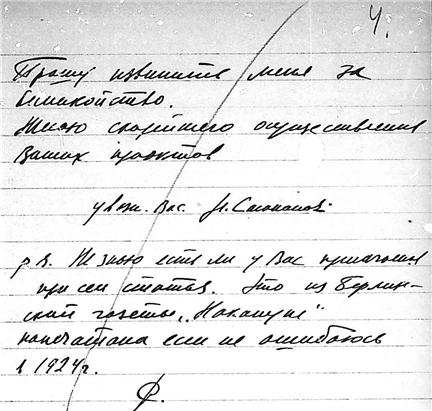 4.
Прошу извинить меня за
беспокойство.
Желаю скорейшего осуществления
Ваших проектов
уваж. Вас
р S. Не знаю есть ли у Вас прилагаемая
при сем статья. Это из Берлин-
ской газеты „Накануне"
напечатана если не ошибаюсь
в 1924г.